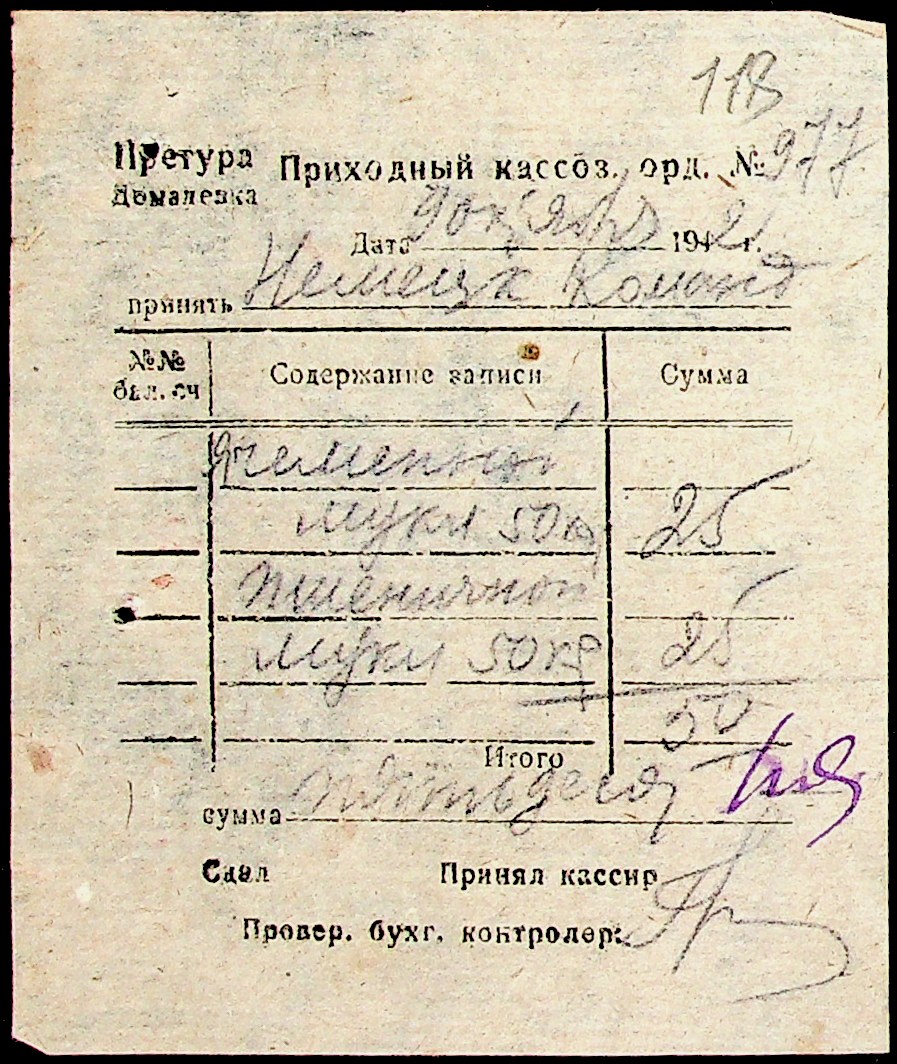 118
Претура Приходный кассов. орд. № 977
Домалевка
Дата 9 октября 1942 г.
принять Немецк Команд
№№ бал. сч Содержание записи Сумма
Ячменной
муки 50 кг 25
Пшеничной
муки 50 кг 25
50
Итого
сумма пятьдесят
Сдал Принял кассир
Провер. бухг. контролер: